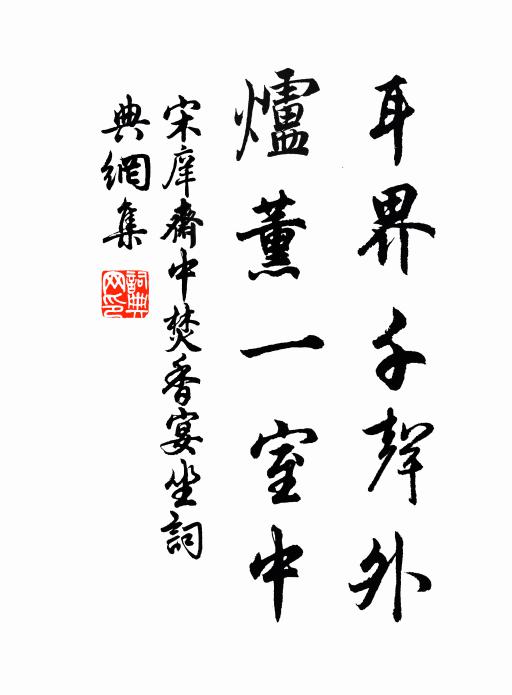 耳界千聲外
爐薰一室中
宋庠齋中焚香宴坐詞
典網集
詞典網印